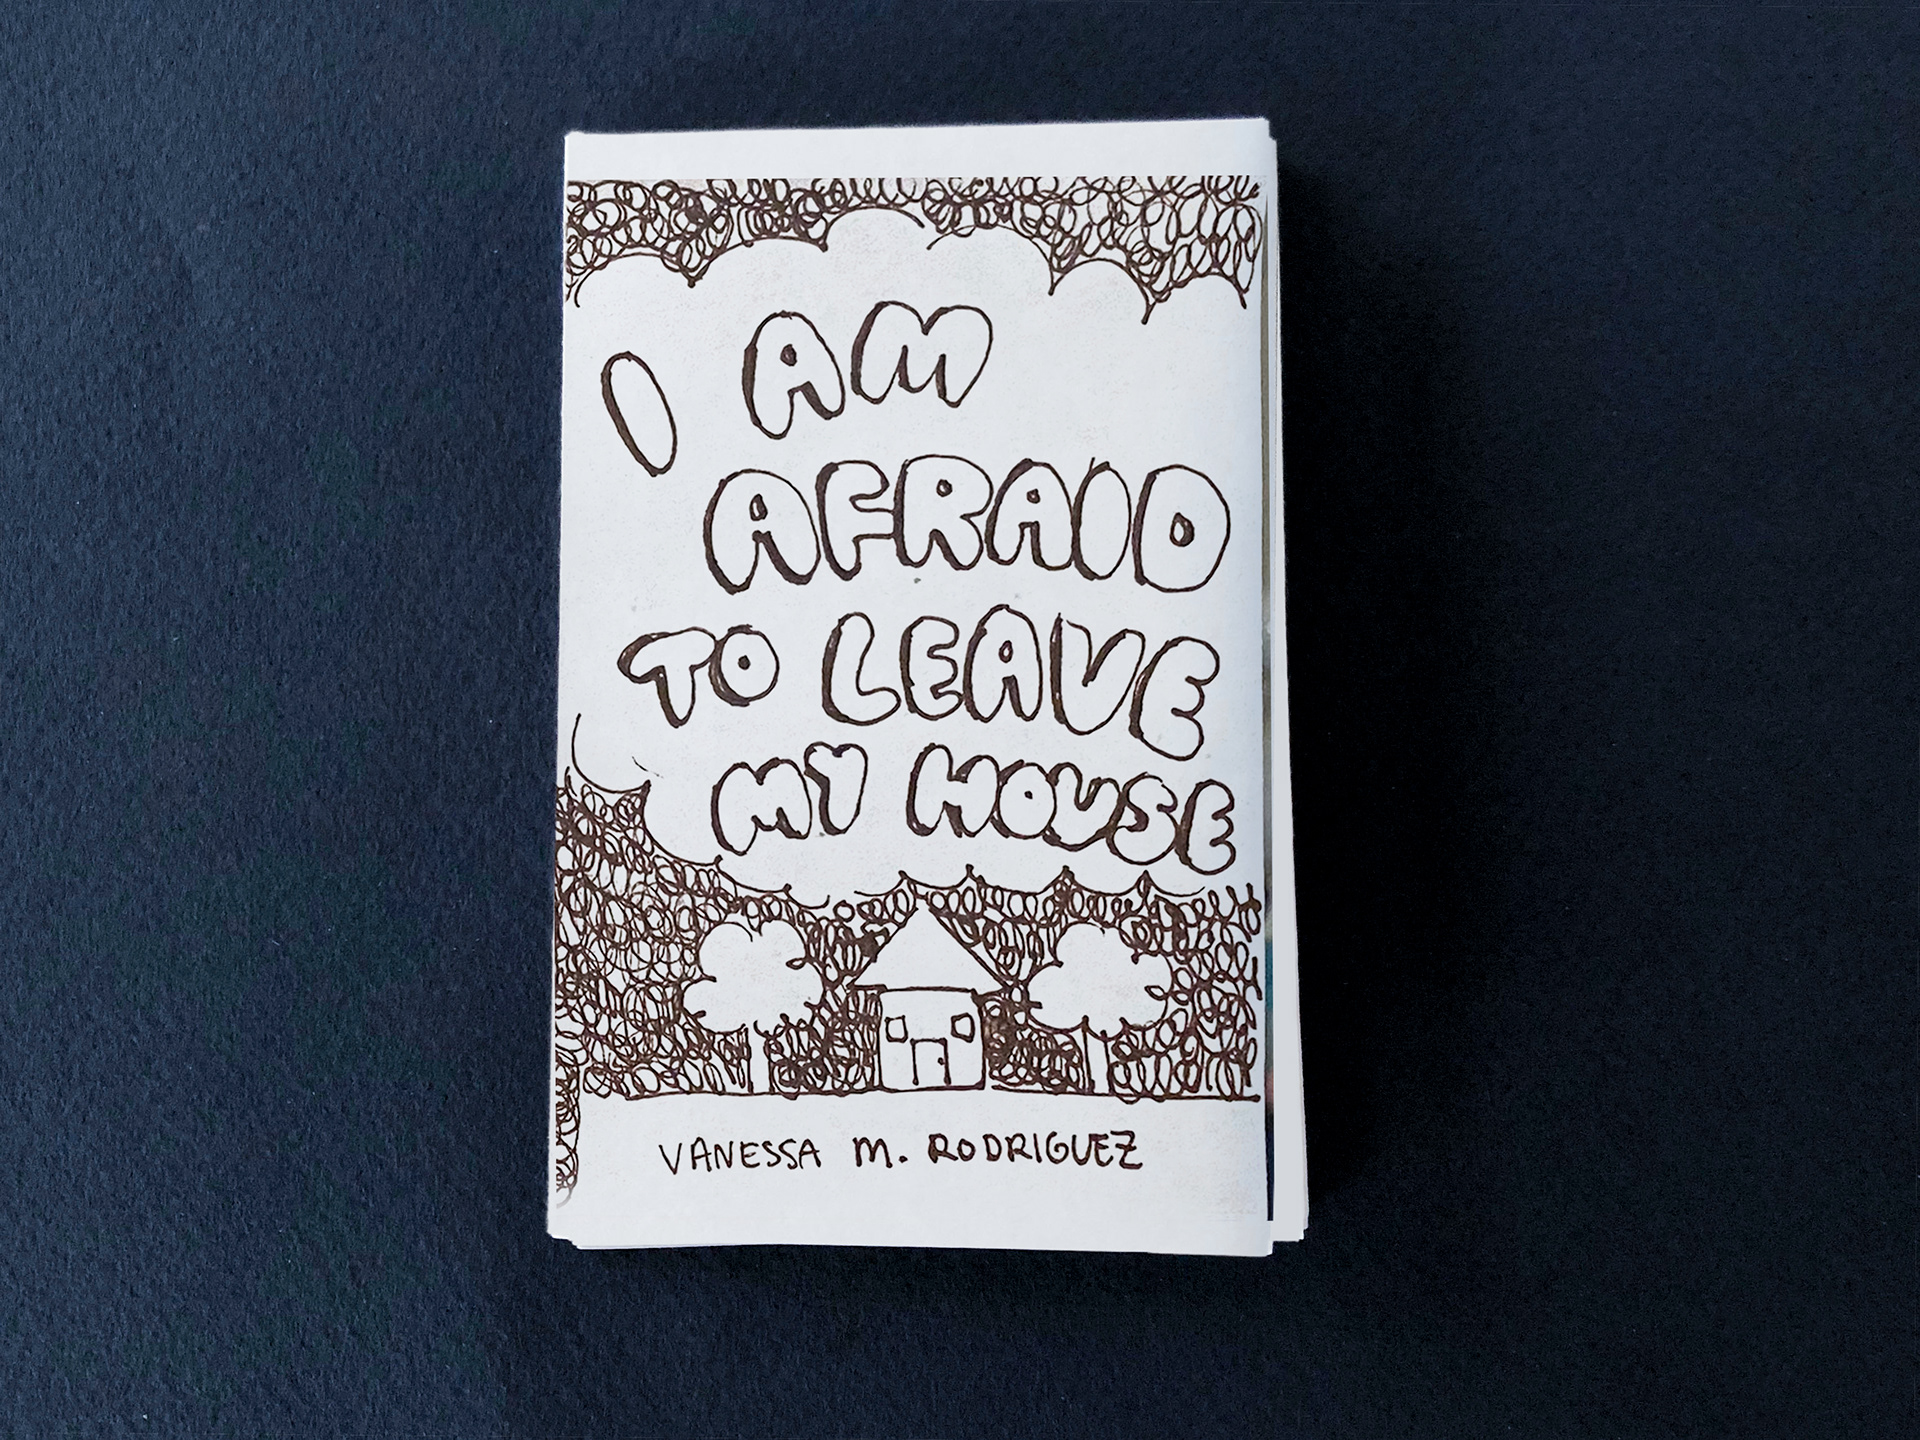 I AM
AFRAID
TO LEAVE
MY HOUSE
VANESSA M. RODRIGUEZ